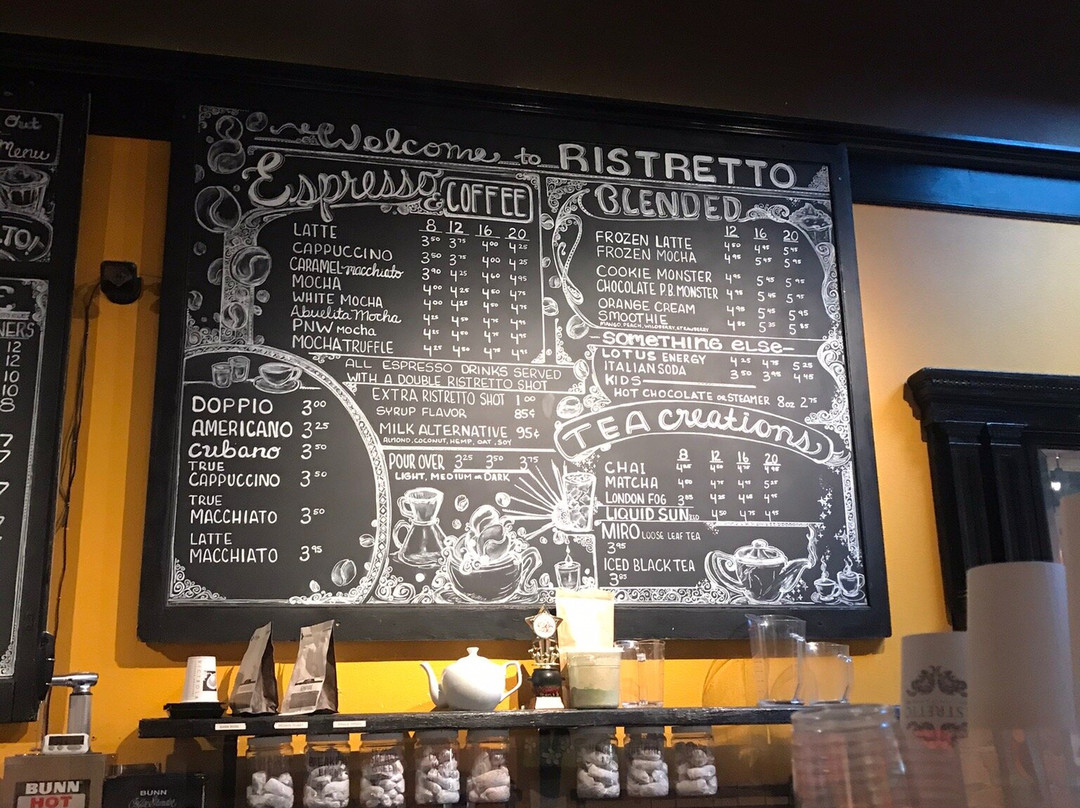 Out
Menu
NERS
12
12
10
10
8
Welcome to RISTRETTO
Espresso & COFFEE
8 12 16 20
LATTE 3⁵⁰ 3⁷⁵ 4⁰⁰ 4²⁵
CAPPUCCINO 3⁵⁰ 3⁷⁵ 4⁰⁰ 4²⁵
CARAMEL macchiato 3⁹⁰ 4²⁵ 4⁶⁰ 4⁹⁵
MOCHA 4⁰⁰ 4²⁵ 4⁵⁰ 4⁷⁵
WHITE MOCHA 4⁰⁰ 4²⁵ 4⁵⁰ 4⁷⁵
Abuelita Mocha 4²⁵ 4⁵⁰ 4⁷⁵ 4⁹⁵
PNW MOCHA 4²⁵ 4⁵⁰ 4⁷⁵ 4⁹⁵
MOCHA TRUFFLE 4²⁵ 4⁵⁰ 4⁷⁵ 4⁹⁵
ALL ESPRESSO DRINKS SERVED
WITH A DOUBLE RISTRETTO SHOT
EXTRA RISTRETTO SHOT 1⁰⁰
SYRUP FLAVOR 85¢
MILK ALTERNATIVE 95¢
ALMOND, COCONUT, HEMP, OAT, SOY
POUR OVER 3²⁵ 3⁵⁰ 3⁷⁵
LIGHT, MEDIUM or DARK
DOPPIO 3⁰⁰
AMERICANO 3²⁵
Cubano 3⁵⁰
TRUE
CAPPUCCINO 3⁵⁰
TRUE
MACCHIATO 3⁵⁰
LATTE
MACCHIATO 3⁹⁵
BLENDED
12 16 20
FROZEN LATTE 4⁵⁰ 4⁹⁵ 5⁴⁵
FROZEN MOCHA
COOKIE MONSTER 4⁹⁵ 5⁴⁵ 5⁹⁵
CHOCOLATE P.B. MONSTER 4⁹⁵ 5⁴⁵ 5⁹⁵
ORANGE CREAM 4⁹⁵ 5⁴⁵ 5⁹⁵
SMOOTHIE 4⁸⁵ 5³⁵ 5⁸⁵
MANGO, PEACH, WILDBERRY, STRAWBERRY
SOMETHING ELSE
LOTUS ENERGY 4²⁵ 4⁷⁵ 5²⁵
ITALIAN SODA 3⁵⁰ 3⁹⁵ 4⁴⁵
KIDS
HOT CHOCOLATE OR STEAMER 8oz 2⁷⁵
TEA creations
8 12 16 20
CHAI
MATCHA
LONDON FOG 3⁸⁵ 4²⁵
LIQUID SUN 4⁵⁰ 4⁷⁵ 4⁹⁵
MIRO LOOSE LEAF TEA
3⁹⁵
ICED BLACK TEA
3²⁵
BUNN
HOT
BUNN